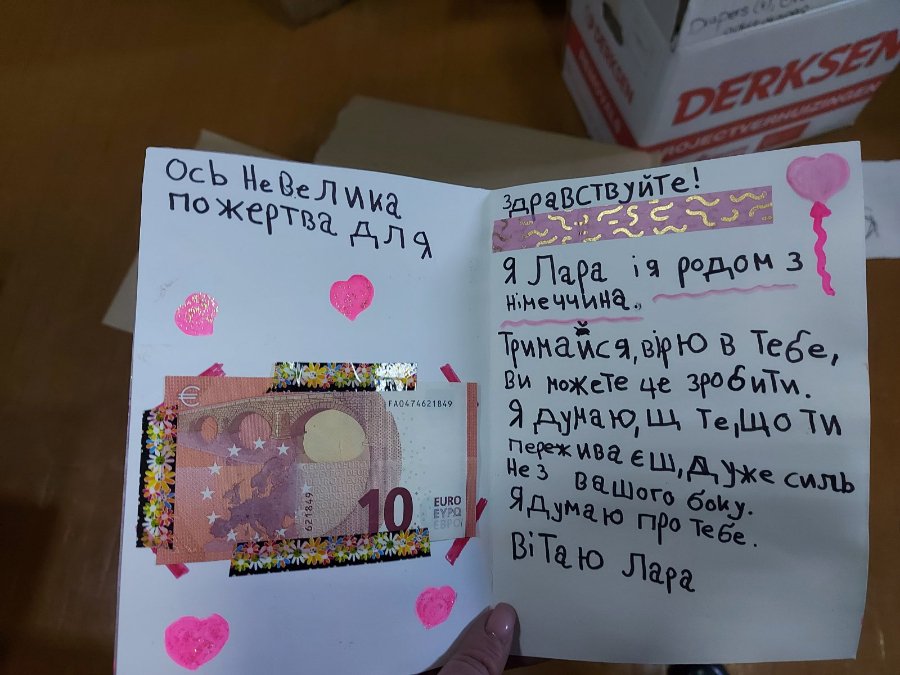 Drapers (
DERKSEN
DERKSEN
PROJECTVERHUIZINGEN
Ось Невелика
пожертва для
€
FA0474621849
621849
10
EURO
ΕΥΡΩ
ЕВРО
здравствуйте!
Я Лара ія родом з
німеччина.
Тримайся, вірю в Тебе,
ви можете це зробити.
Я думаю, щ те, що ти
переживаєш, дуже силь
не з вашого боку.
Я думаю про тебе.
Вітаю Лара